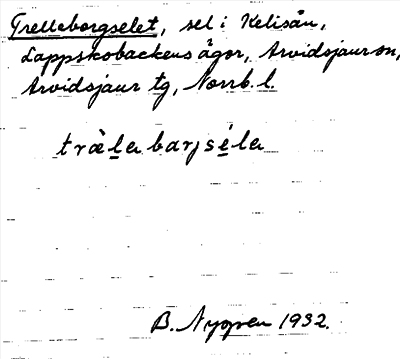 Trelleborgselet, sel i Kelisån,
Lappskobackens ägor, Arvidsjaur sn,
Arvidsjaur tg, Norrb. l.
trälabarjséla
B. Nygren 1932.